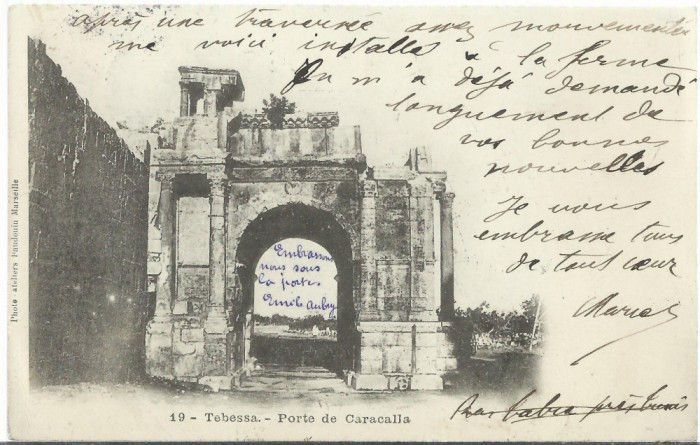 après une traversée assez mouvementée
me voici installés à la ferme
On m'a déjà demandé
longuement de
vos bonnes
nouvelles
Je vous
embrasse tous
de tout cœur
Marie
Embrassons
nous sous
la porte
Emile Aubry
Photo ateliers Baudouin Marseille
19 - Tebessa. - Porte de Caracalla
près tunis